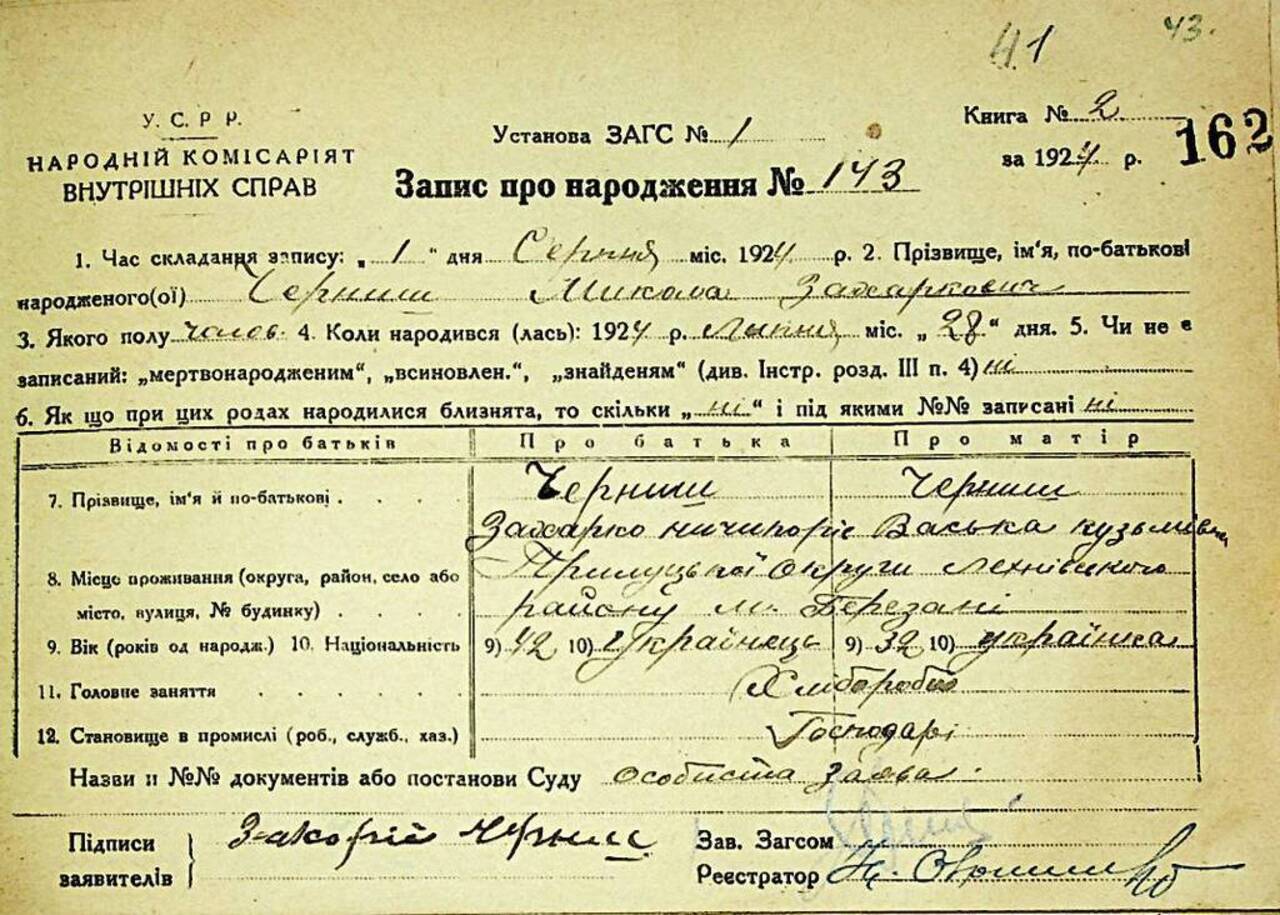 41 43.
У. С. Р Р.
НАРОДНІЙ КОМІСАРІЯТ
ВНУТРІШНІХ СПРАВ
Установа ЗАГС № 1
Запис про народження № 143
Книга № 2
за 1924 р.
162
1. Час складання запису: „ 1 “ дня Серпня міс. 1924 р. 2. Прізвище, ім'я, по-батькові
народженого(ої) Черниш Микола Захаркович
3. Якого полу чолов. 4. Коли народився (лась): 1924 р. Липня міс. „ 28 “ дня. 5. Чи не є
записаний: „мертвонародженим“, „всиновлен.“, „знайденям“ (див. Інстр. розд. III п. 4) ні
6. Як що при цих родах народилися близнята, то скільки „ ні “ і під якими №№ записані ні
Відомості про батьків Про батька Про матір
7. Прізвище, ім'я й по-батькові . . . . Черниш Черниш
Захарко Ничипорів Васька Кузьмівна
8. Місце проживання (округа, район, село або Прилуцької Округи Лехнівського
місто, вулиця, № будинку) . . . . району м. Березані
9. Вік (років од народж.) 10. Національність 9) 42 10) Українець 9) 32 10) українка
11. Головне заняття . . . . . . Хлібороби
12. Становище в промислі (роб., служб., хаз.) Господарі
Назви й №№ документів або постанови Суду особиста заява.
Підписи
заявителів
Захорій Черниш
Зав. Загсом
Реєстратор